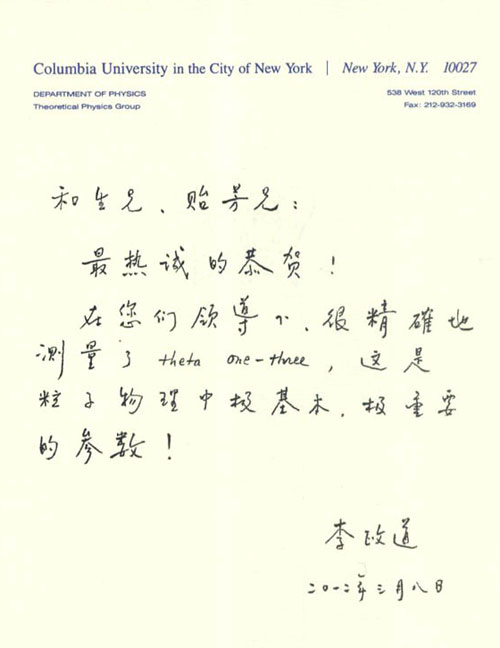 Columbia University in the City of New York | New York, N.Y. 10027
DEPARTMENT OF PHYSICS
538 West 120th Street
Theoretical Physics Group
Fax: 212-932-3169
和生兄、贻芳兄:
最热诚的恭贺!
在您们领导下、很精確地
测量了 theta one-three, 这是
粒子物理中极基本、极重要
的参数!
李政道
二〇一二年三月八日